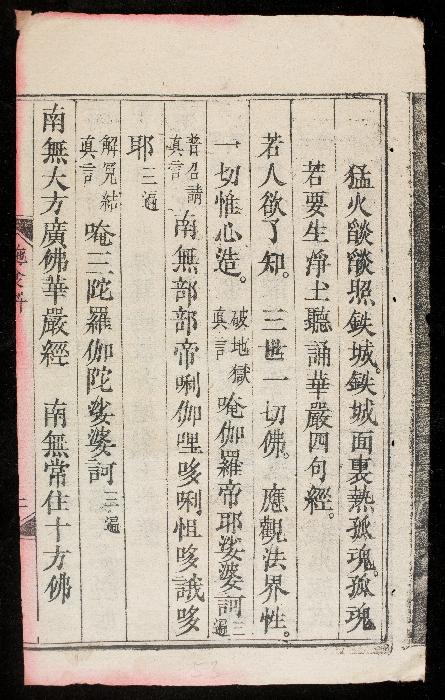 猛火燄燄照鉄城。鉄城面裏熱孤魂。孤魂
若要生淨土聽誦華嚴四句經。
若人欲了知。三世一切佛。應觀法界性。
一切惟心造。破地獄真言唵伽羅帝耶娑婆訶三遍
普召請真言南無部部帝唎伽哩哆唎怛哆誐哆
耶三遍
解冤結真言唵三陀羅伽陀娑婆訶三遍
南無大方廣佛華嚴經 南無常住十方佛